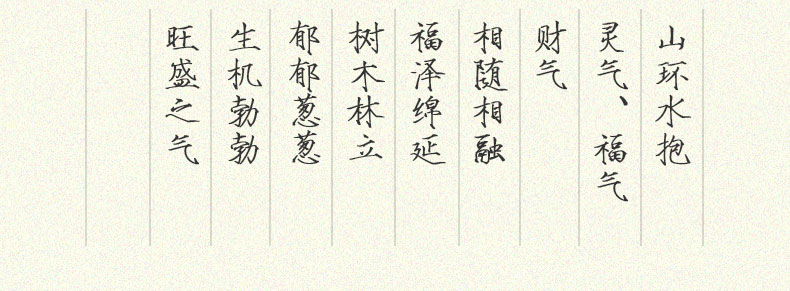 山环水抱
灵气、福气
财气
相随相融
福泽绵延
树木林立
郁郁葱葱
生机勃勃
旺盛之气